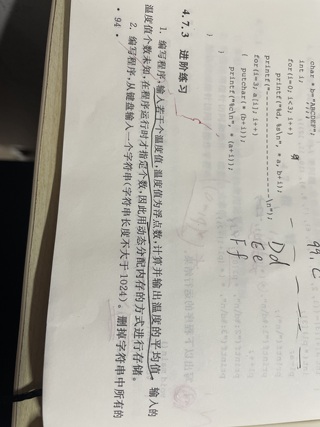 char * b="ABCDEF";
int i;
for(i=0; i<3; i++)
printf("%d, %s\n", * a, b+i);
printf("--------------------\n");
for(i=3; a[i]; i++)
{ putchar( * (b+i));
printf("%c\n", * (a+i));
}
}
99, C
Dd
Ee
Ff
4.7.3 进阶练习
1. 编写程序,输入若干个温度值,温度值为浮点数,计算并输出温度的平均值。输入的
温度值个数未知,在程序运行时才指定个数,因此用动态分配内存的方式进行存储。
2. 编写程序,从键盘输入一个字符串(字符串长度不大于1024)。删掉字符串中所有的
• 94 •